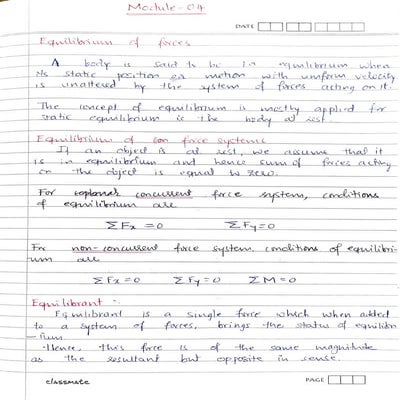 Module - 04
DATE
Equilibrium of forces
A body is said to be in equilibrium when
its static position or motion with uniform velocity
is unaltered by the system of forces acting on it.
The concept of equilibrium is mostly applied for
static equilibrium ie the body at rest.
Equilibrium of force systems
If an object is at rest, we assume that it
is in equilibrium and hence sum of forces acting
on the object is equal to zero.
For coplanar concurrent force system, conditions
of equilibrium are
ΣFx = 0 ΣFy = 0
For non-concurrent force system conditions of equilibri-
um are
ΣFx = 0 ΣFy = 0 ΣM = 0
Equilibrant :-
Equilibrant is a single force which when added
to a system of forces, brings the status of equilibr
-ium.
Hence, this force is of the same magnitude
as the resultant but opposite in sense.
classmate
PAGE